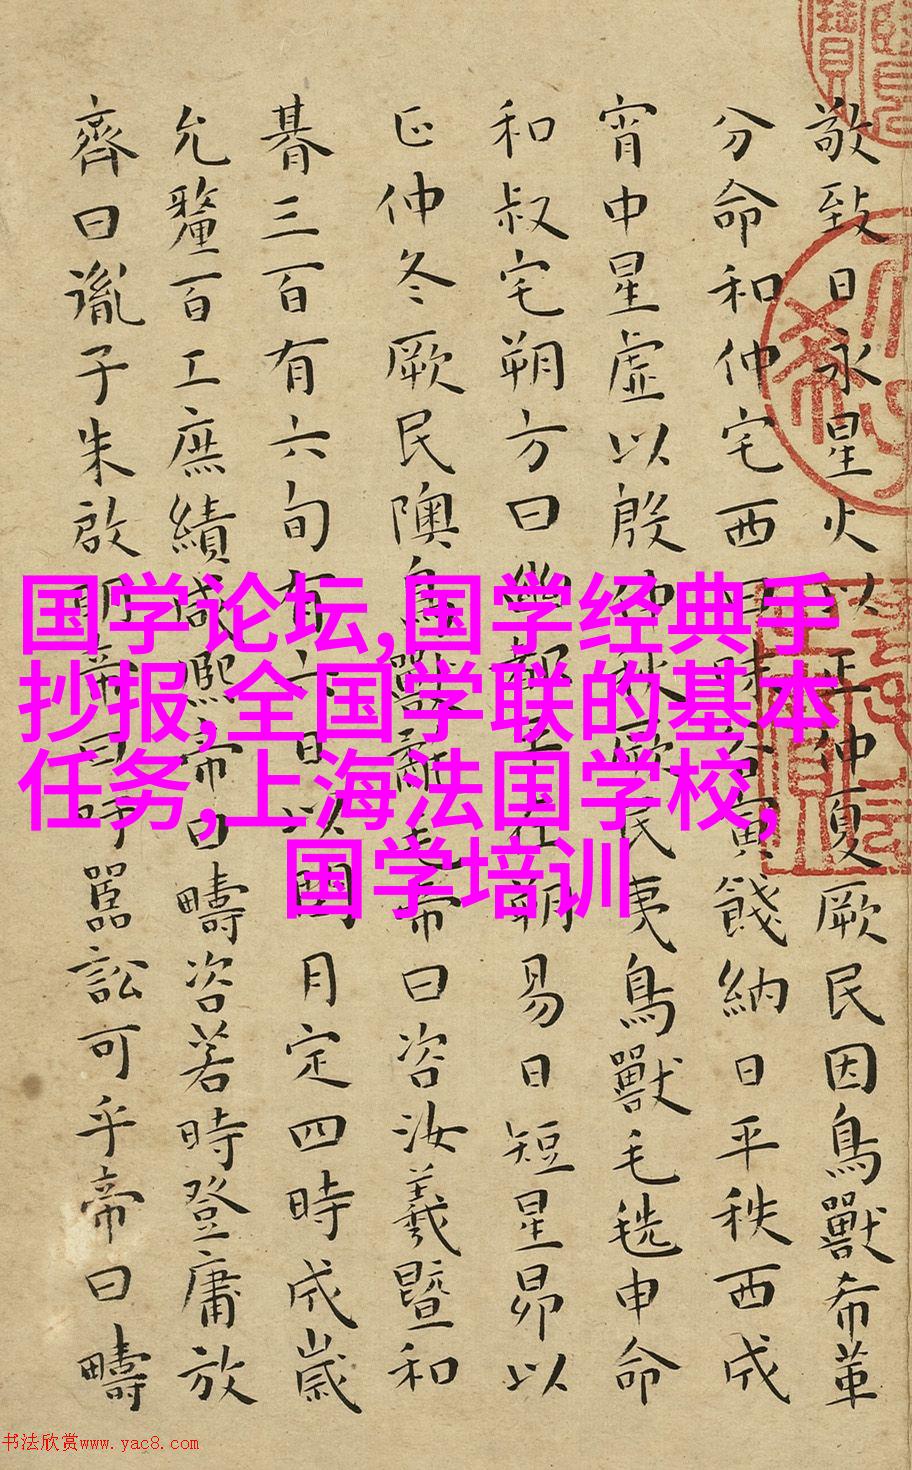 敬致日永星火以正仲夏厥民因鳥獸希革
分命和仲宅西曰昧谷寅餞納日平秩西成
宵中星虛以殷仲秋厥民夷鳥獸毛毨申命
和叔宅朔方曰幽都平在朔易日短星昴以
正仲冬厥民隩鳥獸氄毛帝曰咨汝羲暨和
朞三百有六旬有六日以閏月定四時成歲
允釐百工庶績咸熙帝曰疇咨若時登庸放
齊曰胤子朱啟明帝曰吁嚚訟可乎帝曰疇
国学论坛,国学经典手
抄报,全国学联的基本
任务,上海法国学校,
国学培训
书法欣赏www.yac8.com